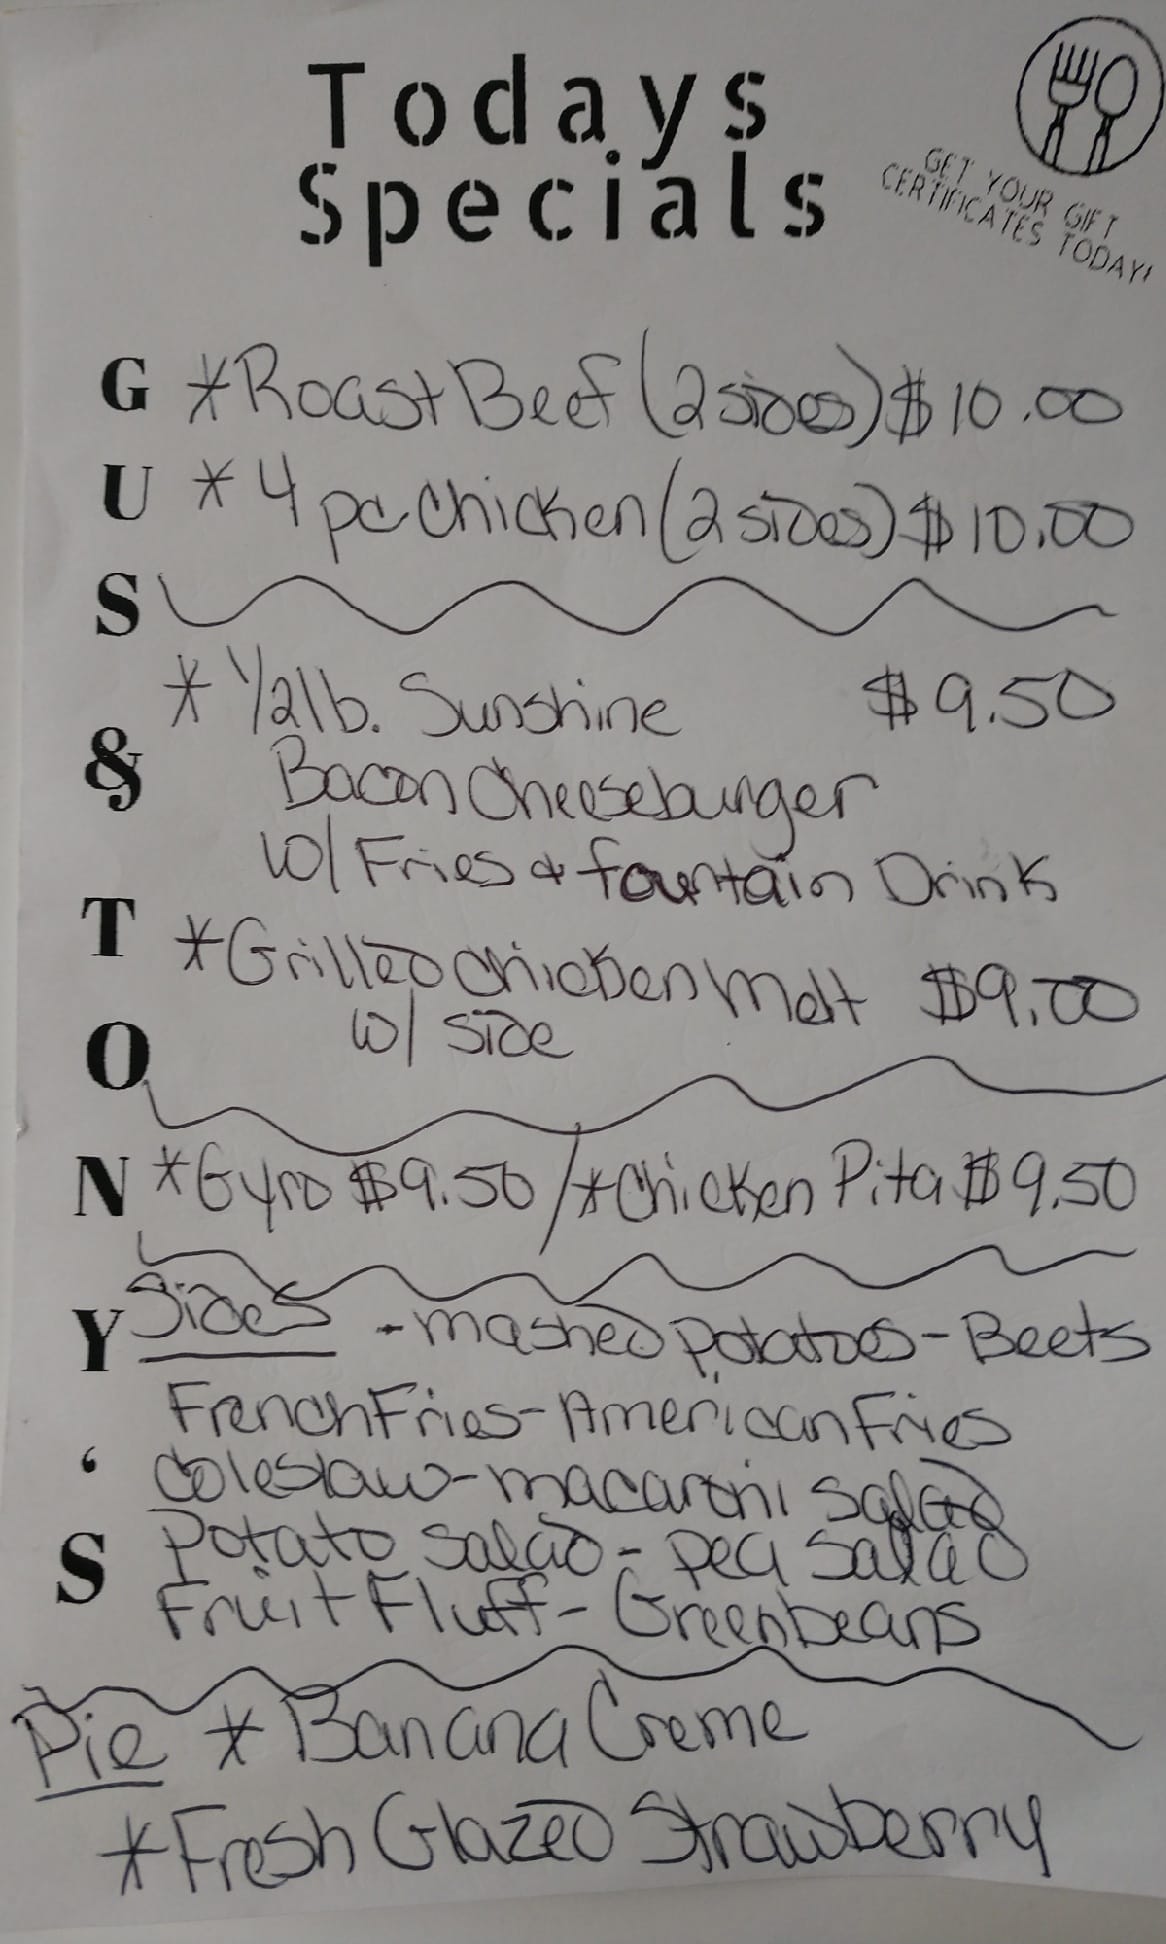 Todays
Specials
GET YOUR GIFT
CERTIFICATES TODAY!
GUS & TONY'S
*Roast Beef (2 sides) $10.00
*4 pc Chicken (2 sides) $10.00
*1/2 lb. Sunshine $9.50
Bacon Cheeseburger
w/ Fries & fountain Drink
*Grilled Chicken Melt $9.00
w/ side
*Gyro $9.50 / *Chicken Pita $9.50
Sides - mashed potatoes - Beets
French Fries - American Fries
Coleslaw - macaroni salad
Potato salad - pea salad
Fruit Fluff - Greenbeans
Pie *Banana Creme
*Fresh Glazed Strawberry